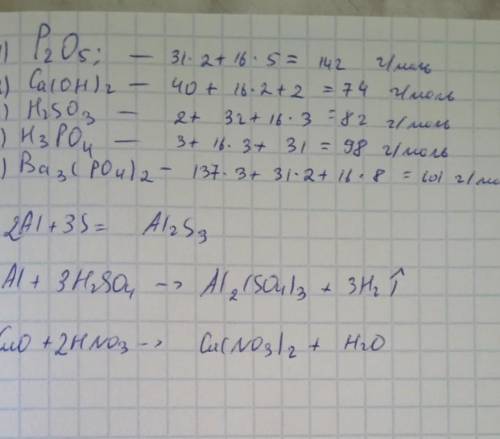 ) P2O5; — 31·2+16·5= 142 г/моль
) Ca(OH)2 — 40+ 16·2+2 = 74 г/моль
) H2SO3 — 2+ 32+16·3 =82 г/моль
) H3PO4 — 3+16·3+ 31 = 98 г/моль
) Ba3(PO4)2 — 137·3+31·2+16·8 = 601 г/мо
2Al+3S= Al2S3
Al+ 3H2SO4 –> Al2(SO4)3 + 3H2↑
CuO +2HNO3 –> Cu(NO3)2 + H2O